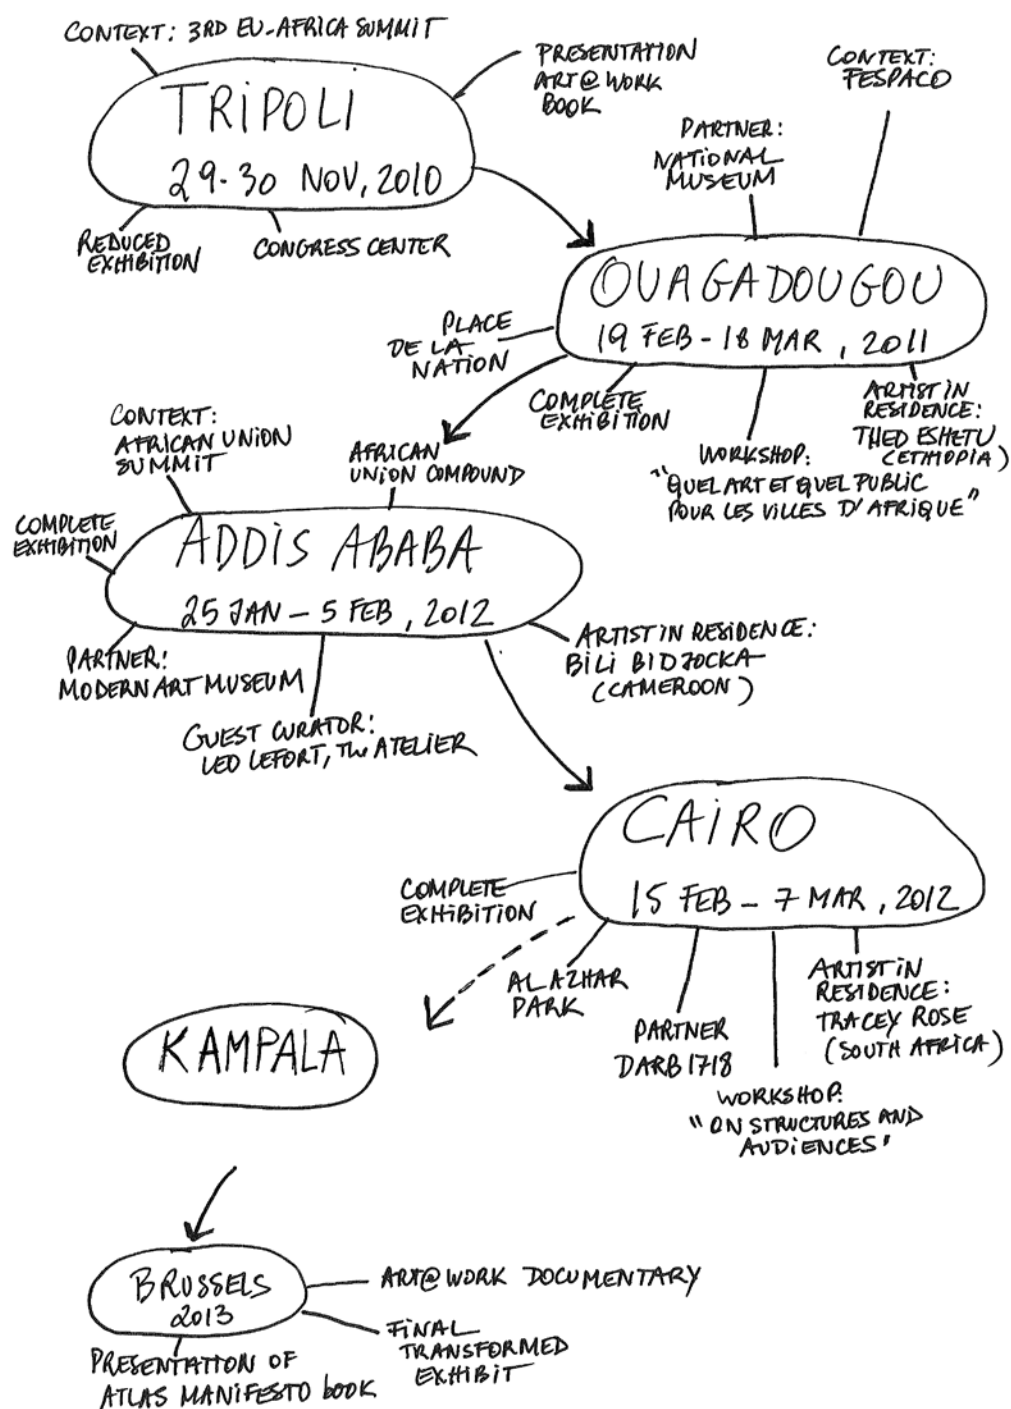 CONTEXT: 3RD EU-AFRICA SUMMIT
TRIPOLI
29-30 NOV, 2010
PRESENTATION
ART@WORK
BOOK
REDUCED
EXHIBITION
CONGRESS CENTER
CONTEXT:
FESPACO
PARTNER:
NATIONAL
MUSEUM
OUAGADOUGOU
19 FEB - 18 MAR, 2011
PLACE
DE LA
NATION
COMPLETE
EXHIBITION
WORKSHOP:
"QUEL ART ET QUEL PUBLIC
POUR LES VILLES D'AFRIQUE"
ARTIST IN
RESIDENCE:
THEO ESHETU
(ETHIOPIA)
CONTEXT:
AFRICAN UNION
SUMMIT
AFRICAN
UNION COMPOUND
COMPLETE
EXHIBITION
ADDIS ABABA
25 JAN - 5 FEB, 2012
PARTNER:
MODERN ART MUSEUM
GUEST CURATOR:
LEO LEFORT, The ATELIER
ARTIST IN RESIDENCE:
BILI BIDJOCKA
(CAMEROON)
CAIRO
15 FEB - 7 MAR, 2012
COMPLETE
EXHIBITION
AL AZHAR
PARK
PARTNER
DARB 1718
WORKSHOP:
"ON STRUCTURES AND
AUDIENCES"
ARTIST IN
RESIDENCE:
TRACEY ROSE
(SOUTH AFRICA)
KAMPALA
BRUSSELS
2013
ART@WORK DOCUMENTARY
FINAL
TRANSFORMED
EXHIBIT
PRESENTATION OF
ATLAS MANIFESTO book